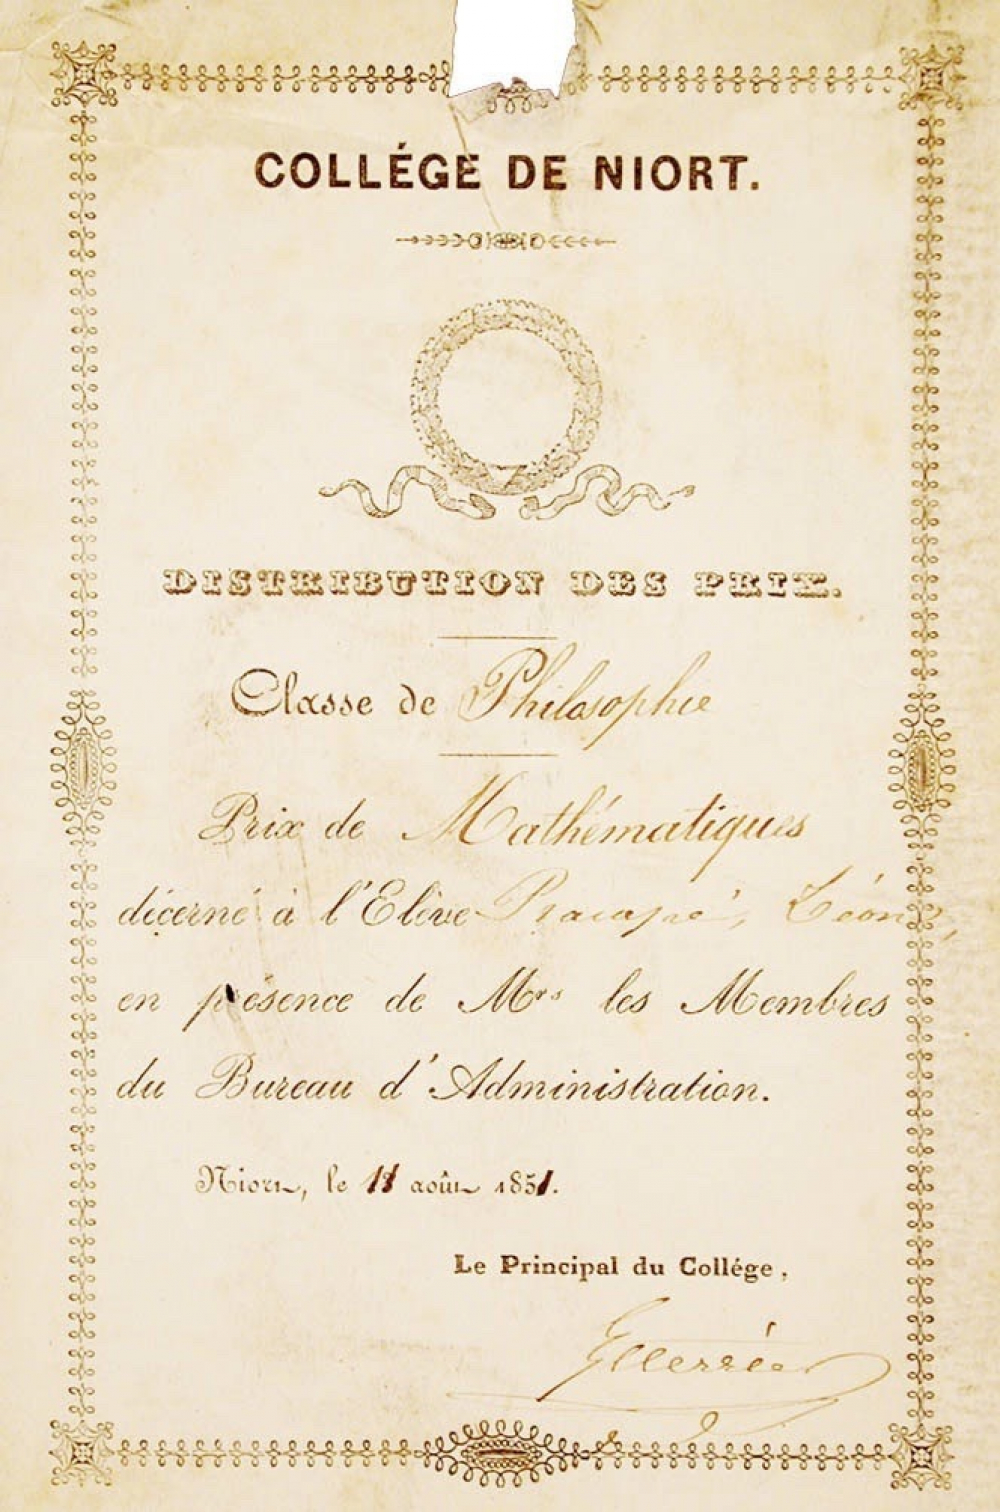 COLLÉGE DE NIORT.
DISTRIBUTION DES PRIX.
Classe de Philosophie
Prix de Mathématiques
décerné à l'Elève Léon,
en présence de Mrs les Membres
du Bureau d'Administration.
Niort, le 18 août 1851.
Le Principal du Collége,